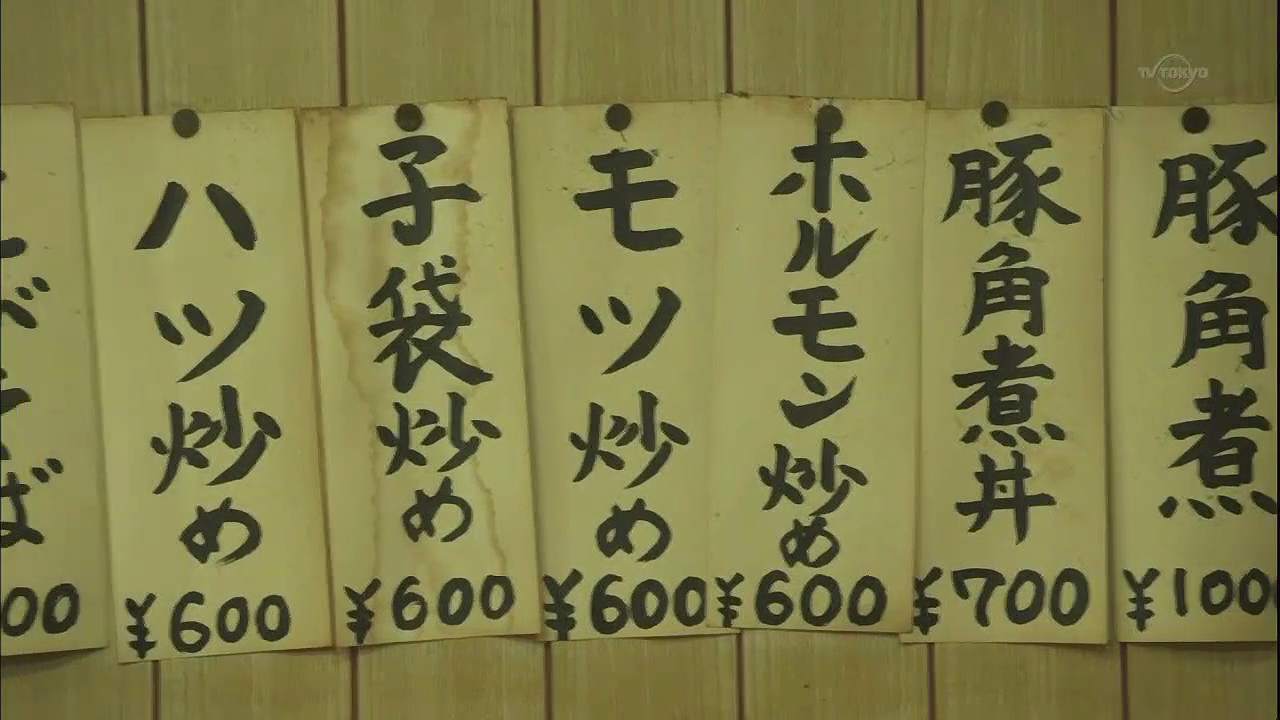 TV TOKYO
豚角煮
¥100
豚角煮丼
¥700
ホルモン炒め
¥600
モツ炒め
¥600
子袋炒め
¥600
ハツ炒め
¥600
00